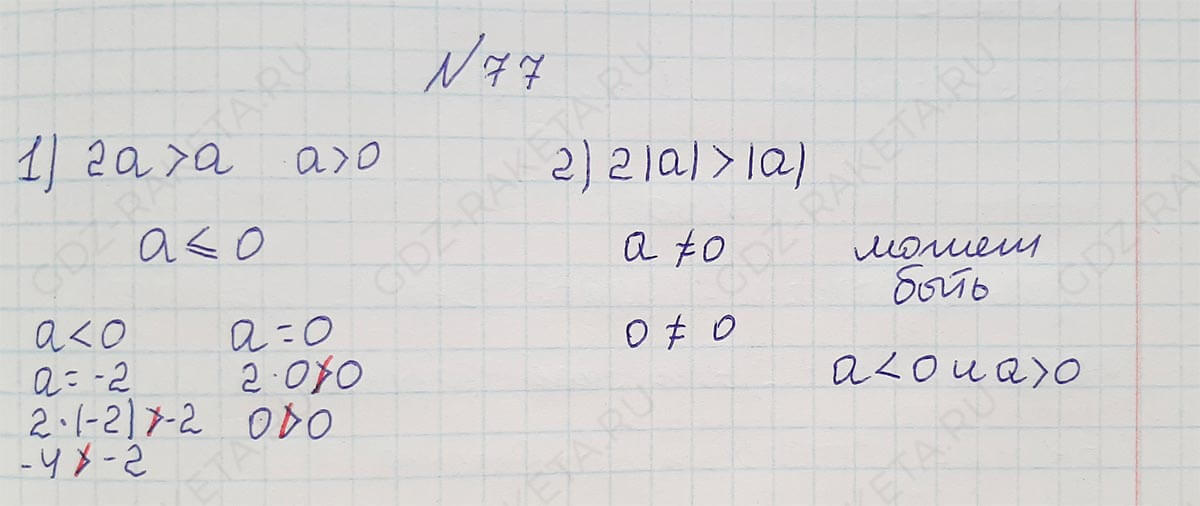 N 77
1) 2a > a a > 0
a ⩽ 0
a < 0 a = 0
a = -2 2·0 ≯ 0
2·(-2) ≯ -2 0 ≯ 0
-4 ≯ -2
2) 2|a| > |a|
a ≠ 0 может
быть
0 ≠ 0
a < 0 и a > 0
GDZ-RAKETA.RU